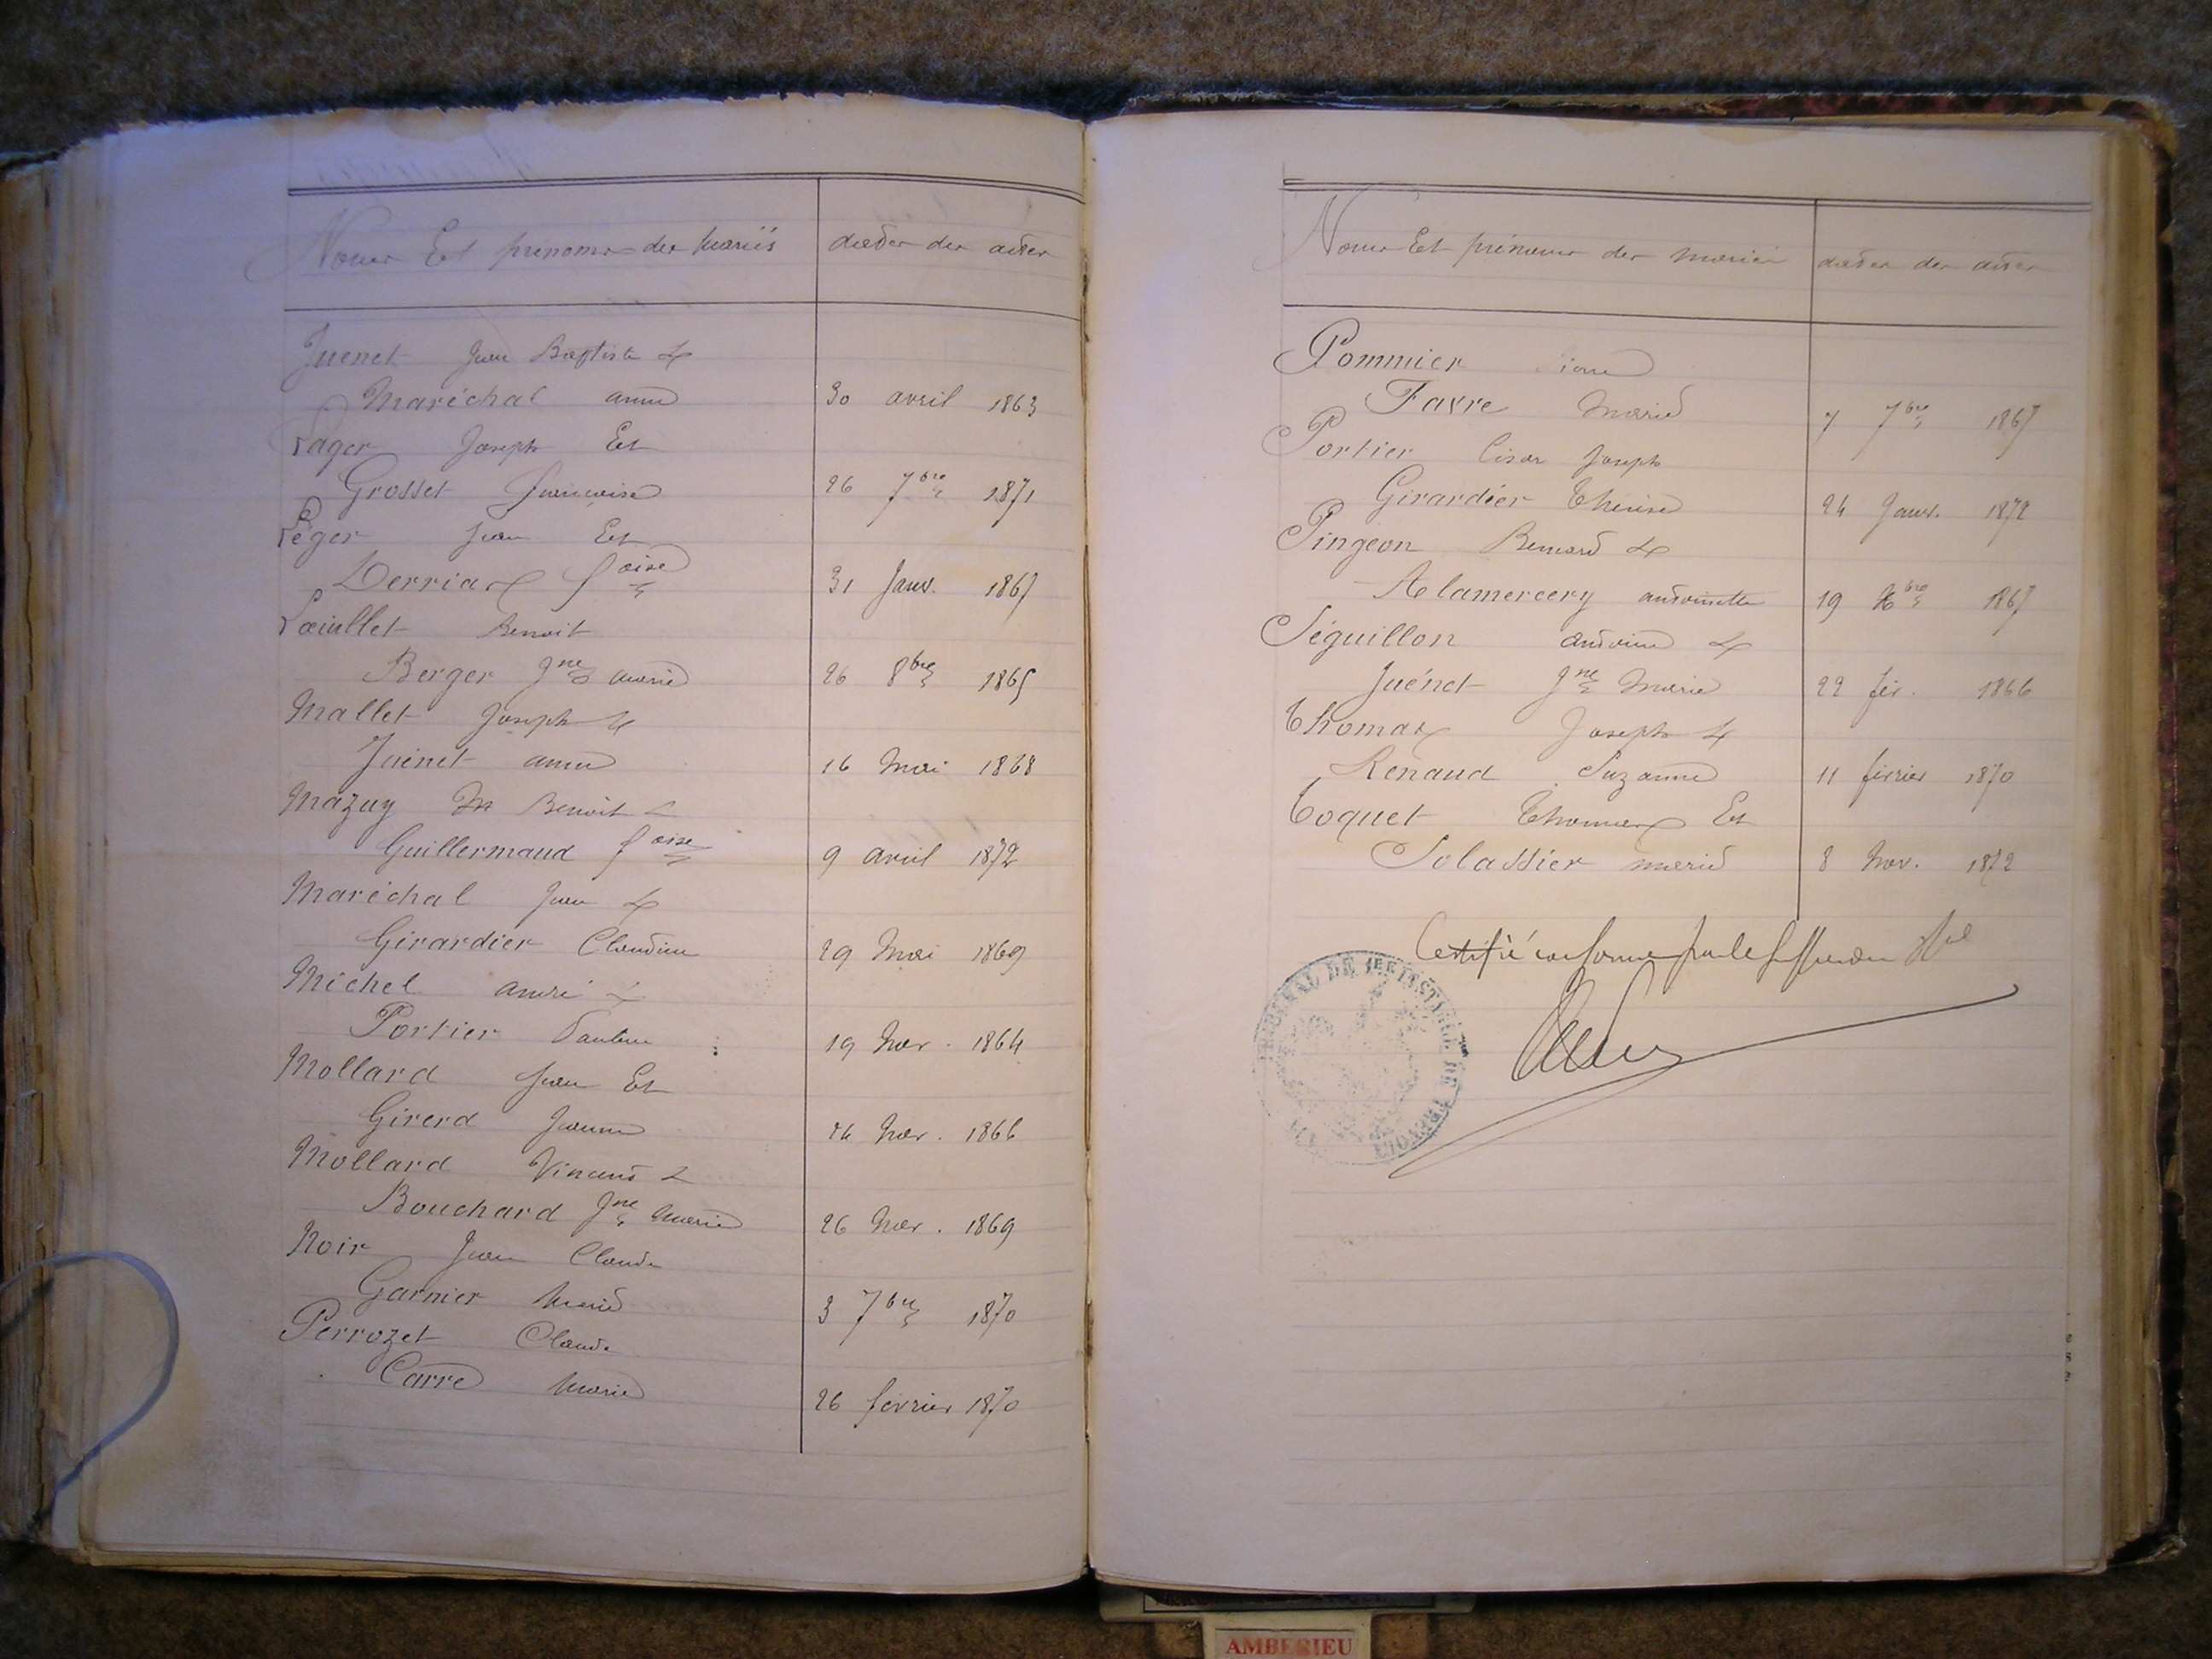 Noms Et prenoms des mariés dates des actes
Juenet Jean Baptiste &
Maréchal anne 30 avril 1863
Lager Joseph Et
Grosset francoise 26 7bre 1871
Léger Jean Et
Derriax foise 31 Janv. 1867
Benoit
Berger Jne marie 26 8bre 1865
Mallet Joseph &
Juenet anne 16 Mai 1868
Mazuy M Benoit &
Guillermaud foise 9 avril 1872
Maréchal Jean &
Girardier Claudine 29 Mai 1869
Michel andré &
Portier Pauline 19 Nov. 1864
Mollard Jean Et
Girerd Jeanne Nov. 1866
Mollard Vincent &
Bouchard Jne Marie 26 Nov. 1869
Noir Jean Claude
Garnier Marie 3 7bre 1870
Perrozet Claude
Carre Marie 26 février 1870
Noms Et prénoms des mariés dates des actes
Pommier Pierre
Favre Marie 7 7bre 1867
Portier César Joseph
Girardier Thérèse 24 Janv. 1872
Pingeon Bernard &
Alamercery antoinette 19 Xbre 1867
Séguillon antoine &
Juénet Jne Marie 22 fév. 1866
Thomas Joseph &
Renaud Suzanne 11 février 1870
Toquet Thomas Et
Solassier marie 8 Nov. 1872
Certifié conforme par le
TRIBUNAL DE 1ERE INSTANCE DE TREVOUX
AMBERIEU